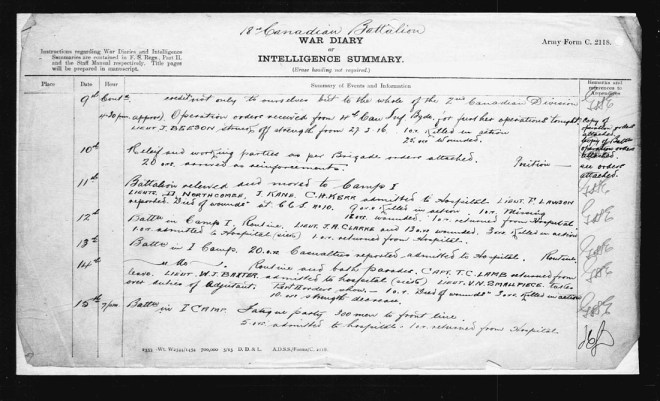 18th Canadian Battalion
WAR DIARY
or
INTELLIGENCE SUMMARY.
(Erase heading not required.)
Army Form C. 2118.
Instructions regarding War Diaries and Intelligence
Summaries are contained in F. S. Regs., Part II.
and the Staff Manual respectively. Title pages
will be prepared in manuscript.
Place Date Hour Summary of Events and Information Remarks and
references to
Appendices
9th Cont'd credit not only to ourselves but to the whole of the 2nd Canadian Division
4.30 pm approx) Operation orders received from 4th Can Inf Bgde. for further operations tonight
LIEUT J. struck off strength from 27.3.16 1 O.R. Killed in action
25 O.R. wounded.
Copy of
operation orders
attached.
Copy of Battn
operation orders
attached.
10th Relief and working parties as per Brigade orders attached. Position —
20 O.R. arrived as reinforcements.
see orders
attached.
11th Battalion relieved and moved to Camp I
LIEUTS. H. NORTHCOMBE, J. KANE, C.A. KERR admitted to Hospital. LIEUT. T. LAWSON
reported "Died of wounds" at C.C.S. No. 10. Killed in action 1 O.R. Missing
wounded. 1 O.R. returned from Hospital.
12th Battn in Camp I, Routine. LIEUT. J.A. CLARKE and 13 O.R. wounded. 3 O.R. Killed in action
1 O.R. admitted to Hospital (sick) 1 O.R. returned from Hospital.
13th Battn in I Camp. 20 O.R. Casualties reported admitted to Hospital. Routine.
14th — do — Routine and bath parades. CAPT. T.C. LAMB returned from
leave. LIEUT. W.J. BAXTER admitted to hospital (sick) LIEUT. V.N. SMALLPIECE takes
over duties of Adjutant. Part II orders show — 1 O.R. "Died of wounds" 3 O.R. Killed in action
10 O.R. strength decrease.
15th 7 pm Battn in I CAMP. Fatigue party 300 men to front line.
5 O.R. admitted to hospital. 1 O.R. returned from Hospital.
D. D. & L. A.D.S.S./Forms/C. 2118.